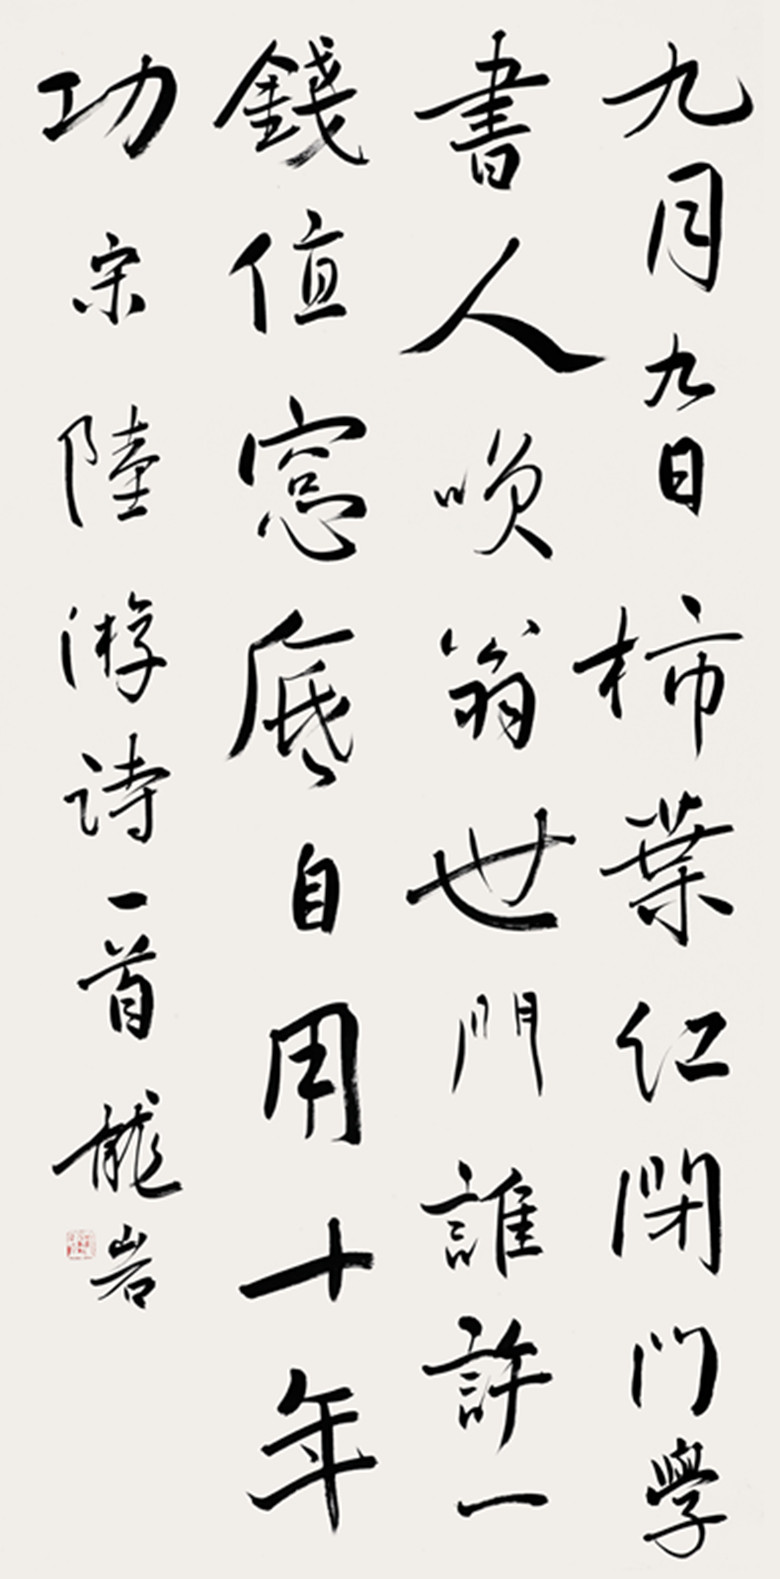 九月九日柿葉紅閉門學
書人咲翁世門誰許一
錢值窓底自用十年
功 宋陸游詩一首 龍岩